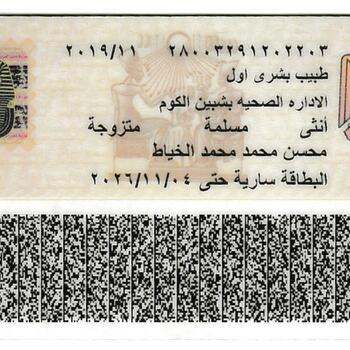 ٢٨٠٠٣٢٩١٢٠٢٢٠٣ ٢٠١٩/١١
طبيب بشرى اول
الاداره الصحيه بشبين الكوم
أنثى مسلمة متزوجة
محسن محمد محمد الخياط
البطاقة سارية حتى ٢٠٢٦/١١/٠٤